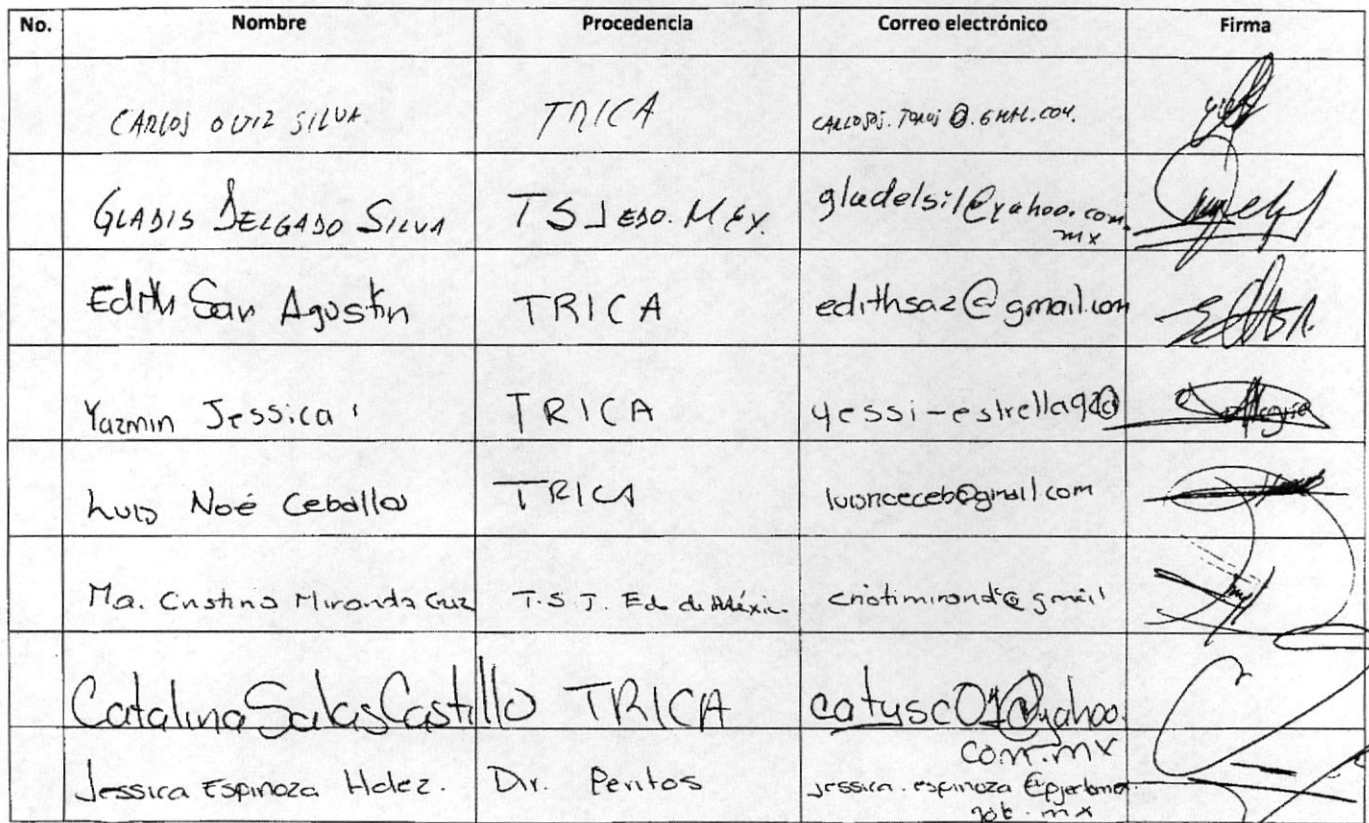 No. Nombre Procedencia Correo electrónico Firma
CARLOS ORTIZ SILVA. TRICA
GLADIS DELGADO SILVA TSJ EDO. MÉX. gladelsil@yahoo.com.
mx
Edith San Agustin TRICA edithsaz@gmail.com
Yazmin Jessica TRICA yessi-estrella92@
Luis Noé Ceballos TRICA luisnoeceb@gmail.com
Ma. Cristina Miranda Cruz T.S.J. Ed. de México cristimirand@gmail
Catalina Salas Castillo TRICA catusc01@yahoo.
com.mx
Jessica Espinoza Hdez. Dir. Peritos jessica.espinoza
gob.mx